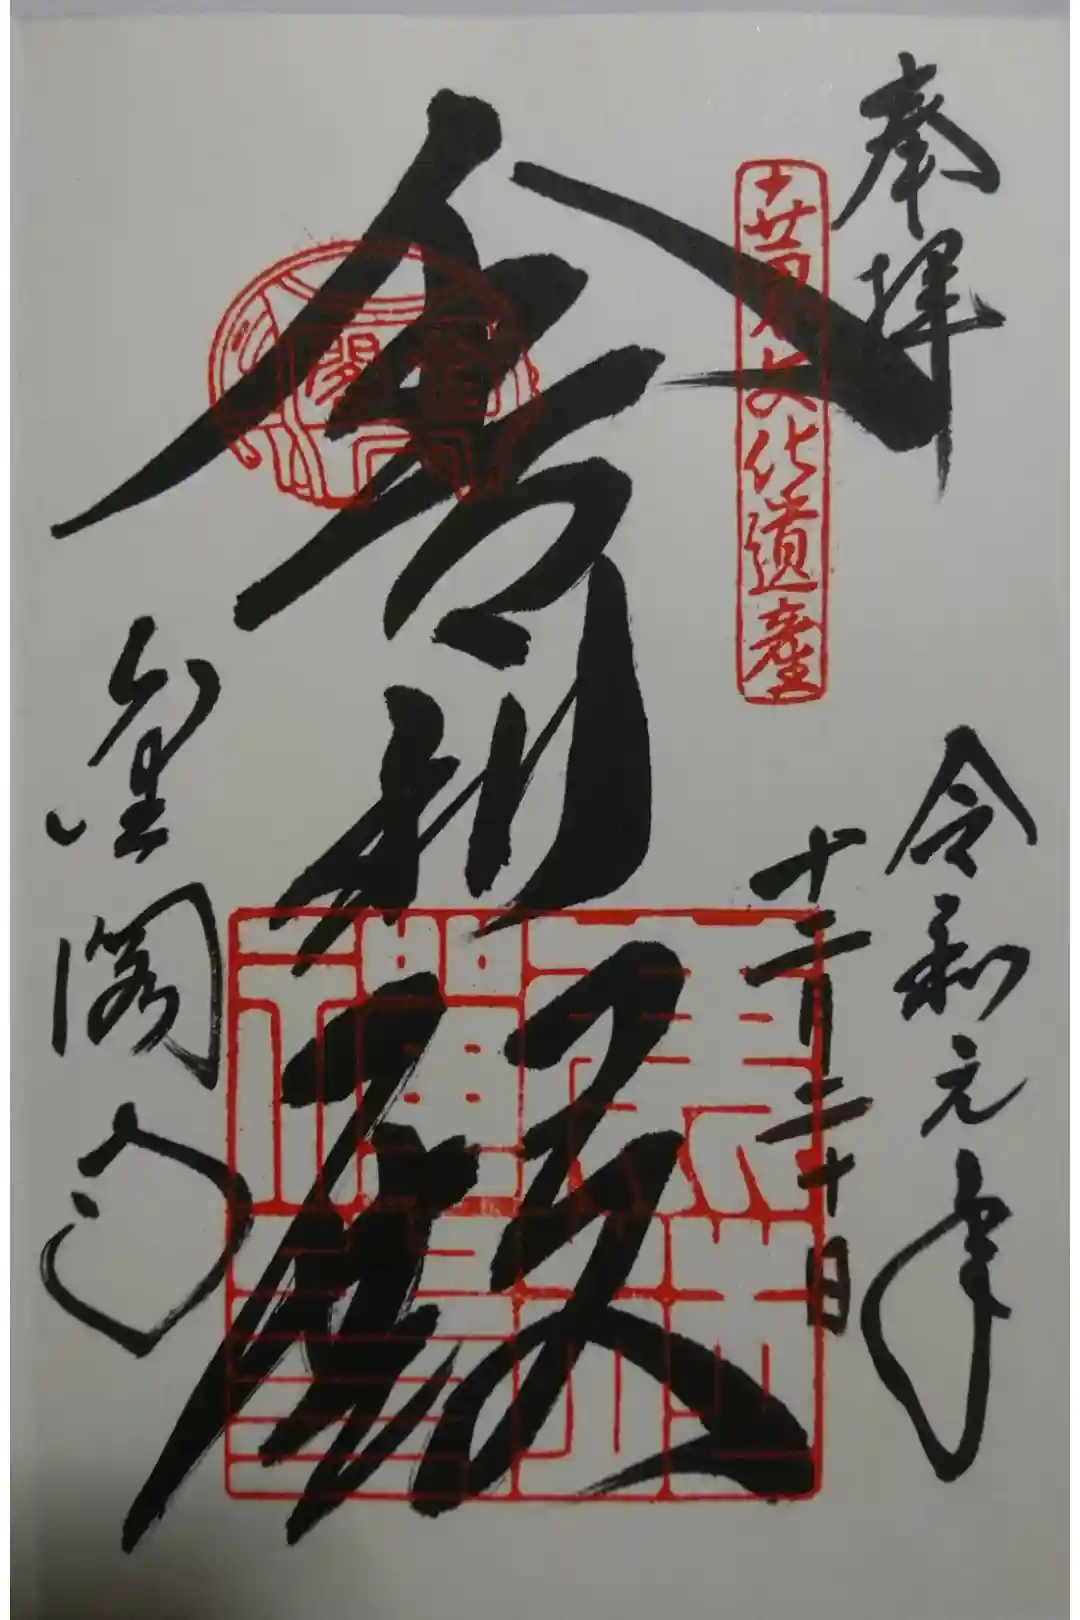 奉拝
世界文化遺産
令和元年
十二月二十日
舎利殿
金閣
金閣寺